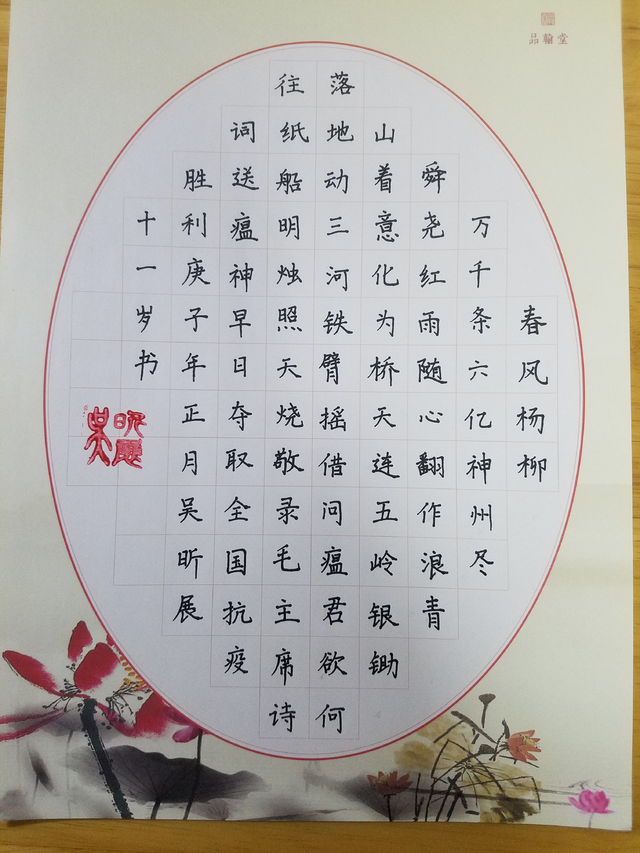 品翰堂
春风杨柳
万千条六亿神州尽
舜尧红雨随心翻作浪青
山着意化为桥天连五岭银锄
落地动三河铁臂摇借问瘟君欲何
往纸船明烛照天烧敬录毛主席诗
词送瘟神早日夺取全国抗疫
胜利庚子年正月吴昕展
十一岁书
吴昕展